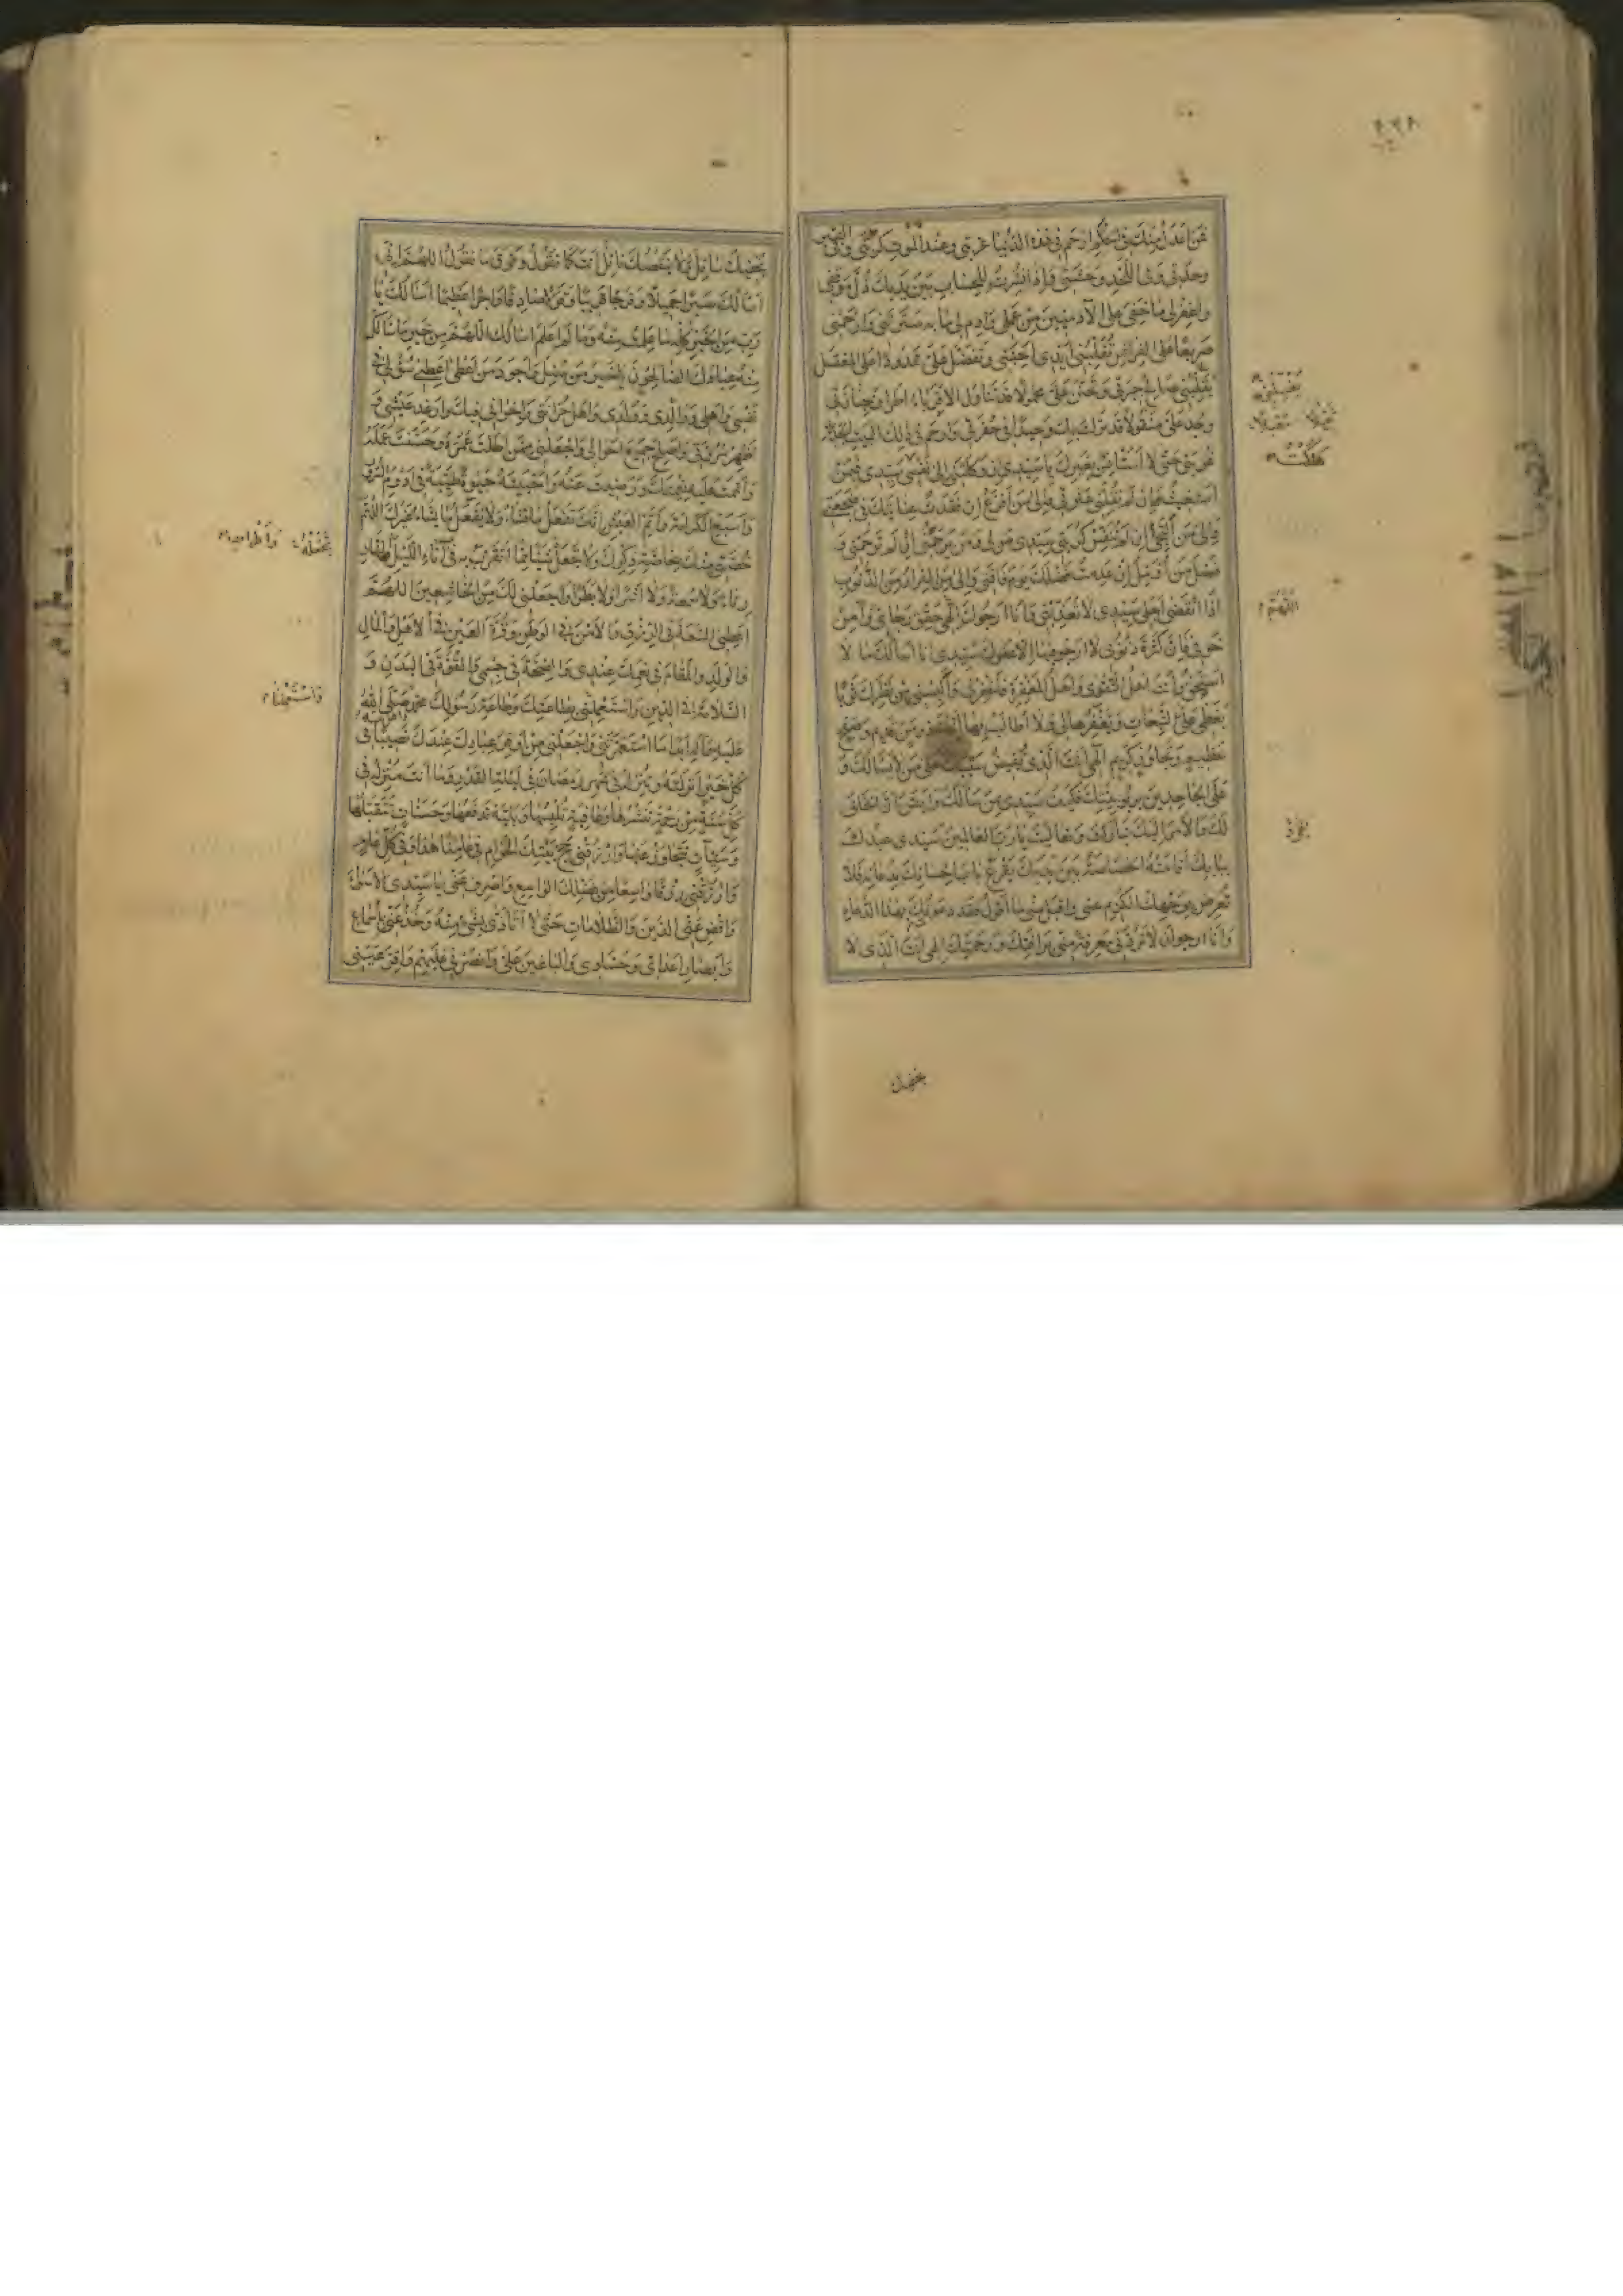 فمن اعدل منك في الحكم ارحم في هذه الدنيا غربتي وعند الموت كربتي وفي القبر
وحدتي وفي اللحد وحشتي وإذا نشرت للحساب بين يديك ذل موقفي
واغفر لي ما خفي على الآدميين من عملي وادم لي ما به سترتني وارحمني
صريعا على الفراش تقلبني ايدي احبتي وتفضل علي ممدودا على المغتسل
يقلبني صالح جيرتي وتحنن علي محمولا قد تناول الاقرباء اطراف جنازتي
وجد علي منقولا قد نزلت بك وحيدا في حفرتي وارحم في ذلك البيت الجديد
غربتي حتى لا استأنس بغيرك يا سيدي ان وكلتني الى نفسي سيدي فبمن
استغيث ان لم تقلني عثرتي فالى من افزع ان فقدت عنايتك في ضجعتي
والى من التجئ ان لم تنفس كربتي سيدي من لي ومن يرحمني ان لم ترحمني و
فضل من اؤمل ان عدمت فضلك يوم فاقتي والى من الفرار من الذنوب
اذا انقضى اجلي سيدي لا تعذبني وانا ارجوك الهي حقق رجائي وآمن
خوفي فان كثرة ذنوبي لا ارجو فيها الا عفوك سيدي انا اسألك ما لا
استحق وانت اهل التقوى واهل المغفرة فاغفر لي والبسني من نظرك ثوبا
يغطي علي التبعات وتغفرها لي ولا اطالب بها انك ذو من قديم وصفح
عظيم وتجاوز كريم الهي انت الذي تفيض سيبك على من لا يسألك و
على الجاحدين بربوبيتك فكيف سيدي بمن سألك وايقن ان الخلق
لك والامر اليك تباركت وتعاليت يا رب العالمين سيدي عبدك
ببابك اقامته الخصاصة بين يديك يقرع باب احسانك بدعائه فلا
تعرض بوجهك الكريم عني واقبل مني ما اقول فقد دعوتك بهذا الدعاء
وانا ارجو ان لا تردني معرفة مني برأفتك ورحمتك الهي انت الذي لا
اللهم
يحفيك سائل ولا ينقصك نائل انت كما تقول وفوق ما نقول اللهم اني
اسألك صبرا جميلا وفرجا قريبا وقولا صادقا واجرا عظيما اسألك يا
رب من الخير كله ما علمت منه وما لم اعلم اسألك اللهم من خير ما سألك
منه عبادك الصالحون يا خير من سئل واجود من اعطى اعطني سؤلي في
نفسي واهلي ووالدي وولدي واهل حزانتي واخواني فيك وارغد عيشي و
اظهر مروتي واصلح جميع احوالي واجعلني ممن اطلت عمره وحسنت عمله
واتممت عليه نعمتك ورضيت عنه واحييته حيوة طيبة في ادوم السرور
واسبغ الكرامة واتم العيش انك تفعل ما تشاء ولا يفعل ما يشاء غيرك اللهم
خصني منك بخاصة ذكرك ولا تجعل شيئا مما اتقرب به في آناء الليل والنهار
رياء ولا سمعة ولا اشرا ولا بطرا واجعلني لك من الخاشعين اللهم
اعطني السعة في الرزق والامن في الوطن وقرة العين في الاهل والمال
والولد والمقام في نعمك عندي والصحة في جسمي والقوة في البدن و
السلامة في الدين واستعملني بطاعتك وطاعة رسولك محمد صلى الله
عليه وآله ابدا ما استعمرتني واجعلني من اوفر عبادك عندك نصيبا في
كل خير انزلته وتنزله في شهر رمضان في ليلة القدر وما انت منزله في
كل سنة من رحمة تنشرها وعافية تلبسها وبلية تدفعها وحسنات تتقبلها
وسيئات تتجاوز عنها وارزقني حج بيتك الحرام في عامنا هذا وفي كل عام
وارزقني رزقا واسعا من فضلك الواسع واصرف عني يا سيدي الاسواء
واقض عني الدين والظلامات حتى لا اتأذى بشيء منه وخذ عني باسماع
وابصار اعدائي وحسادي والباغين علي وانصرني عليهم واقر عيني